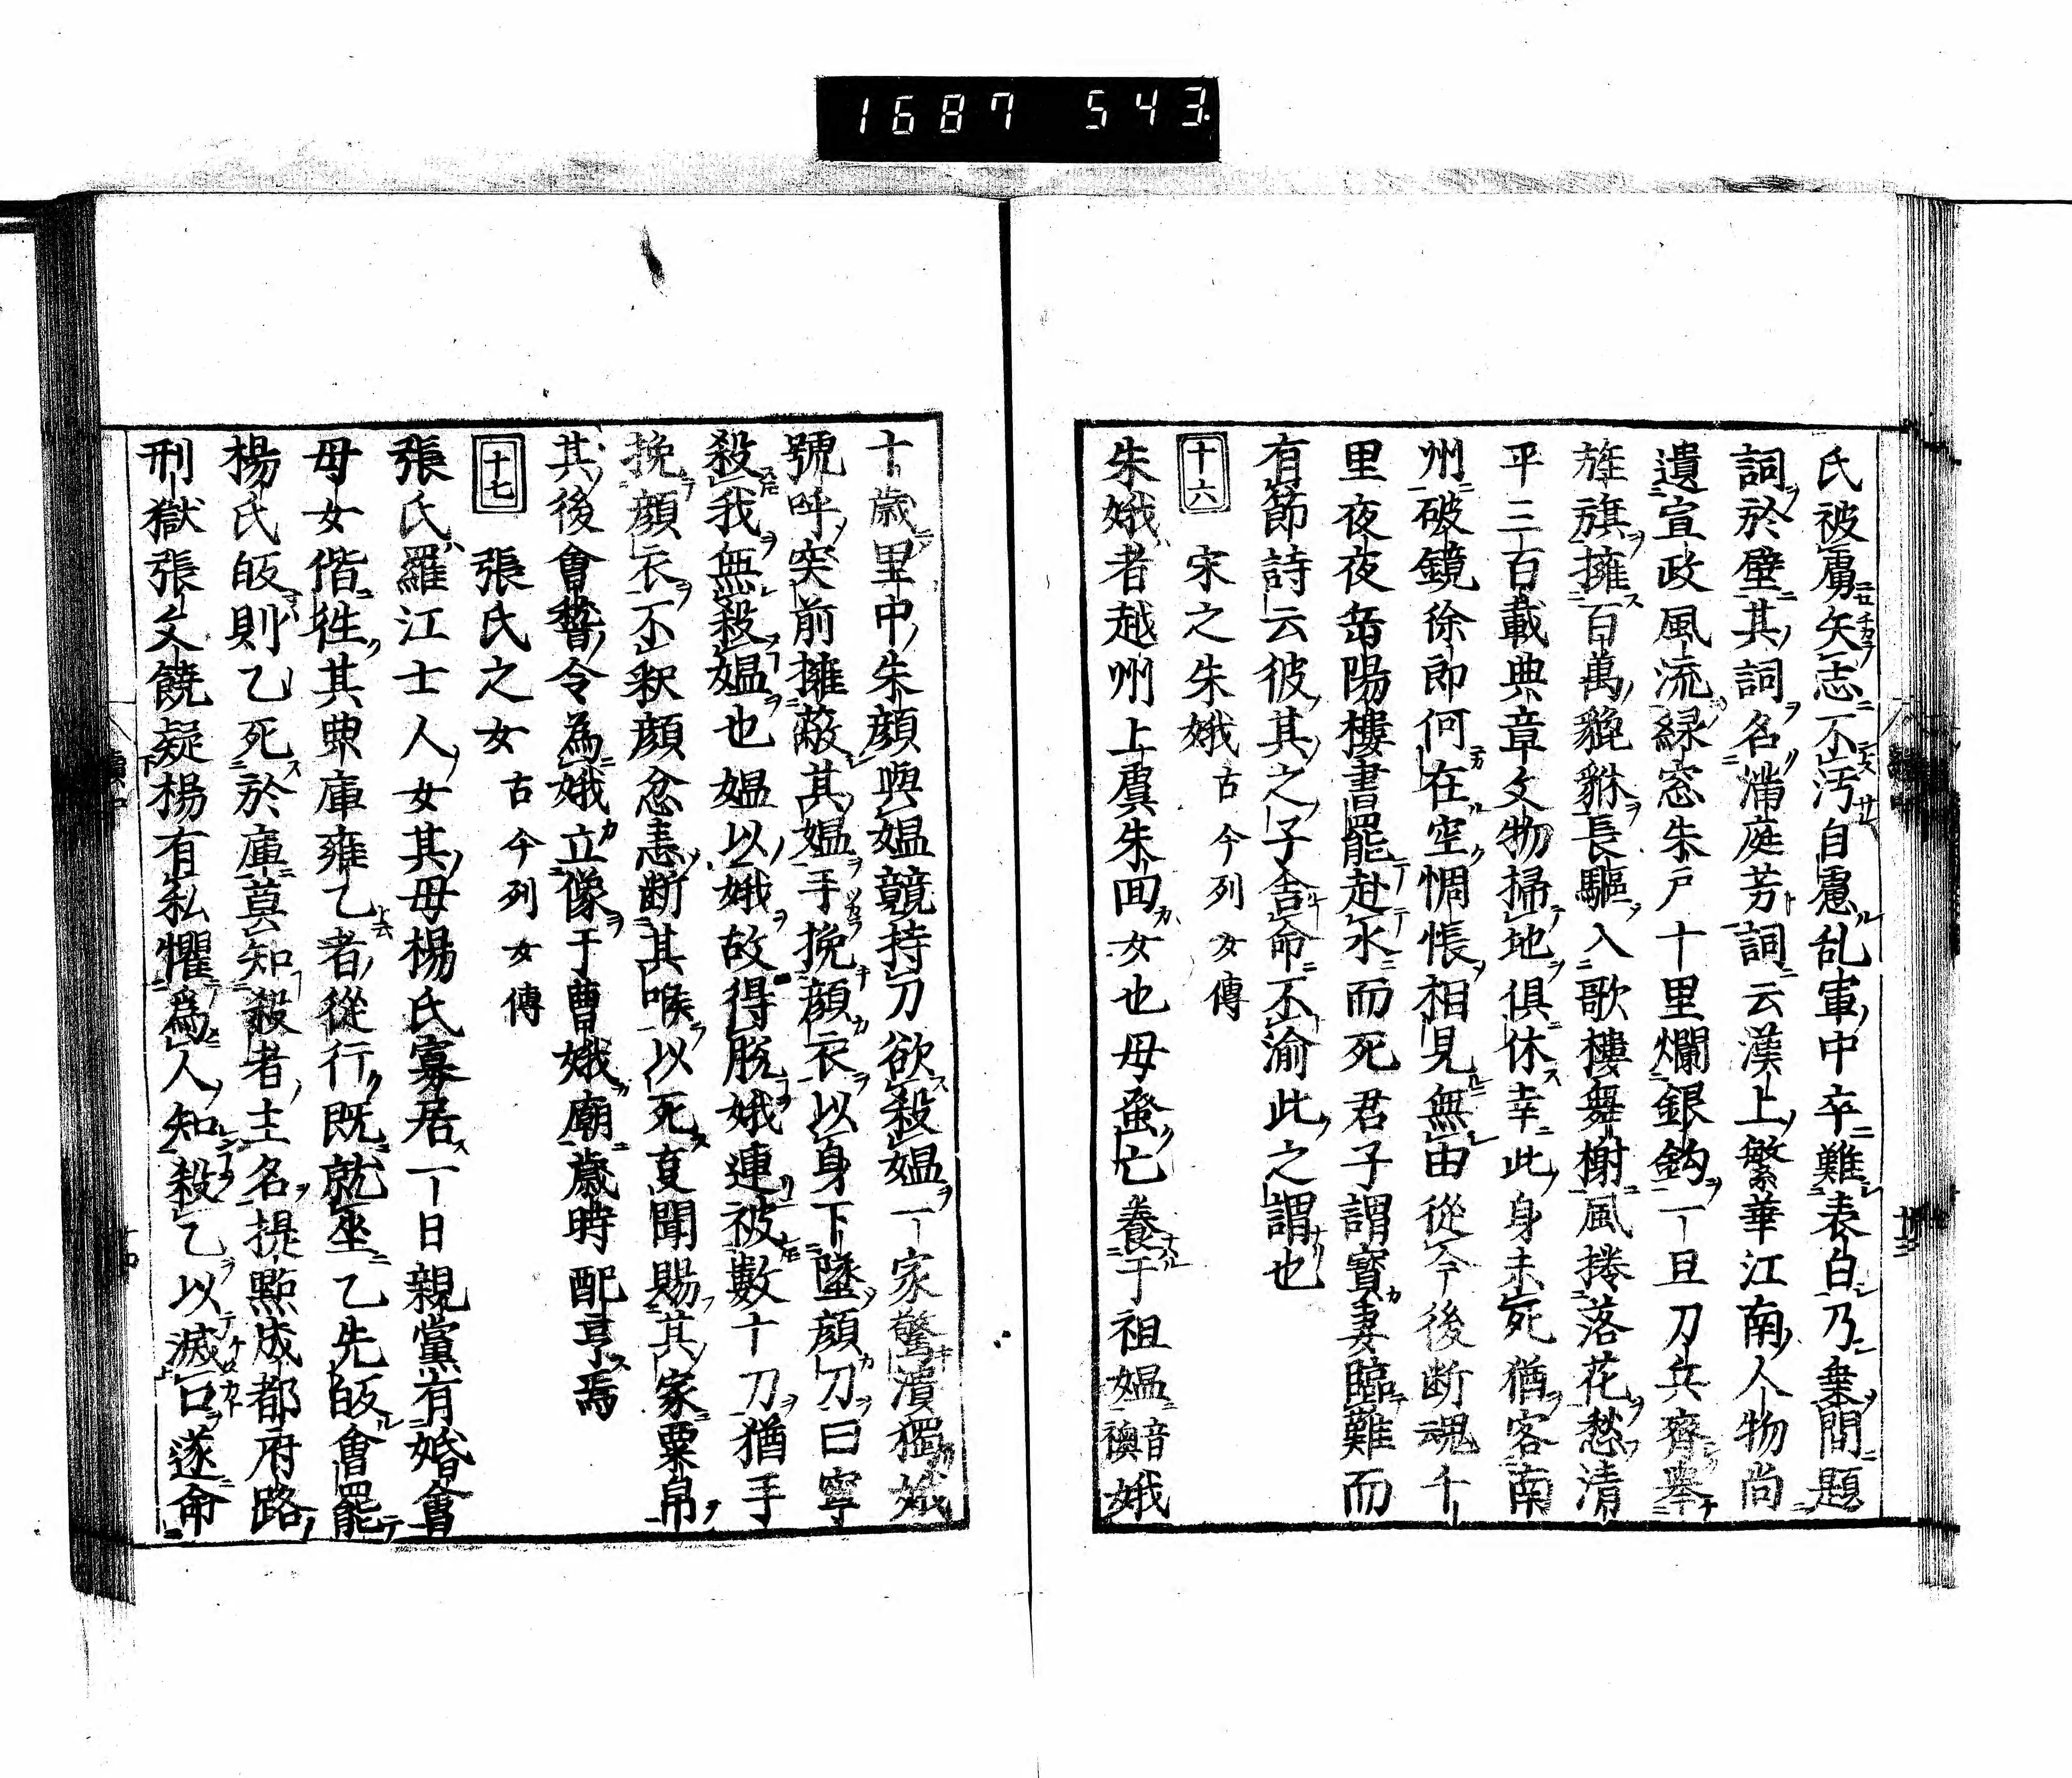 1687 543
氏被虜矢志不汚自慮乱軍中卒難表白乃乗間題
詞於壁其詞名満庭芳詞云漢上繁華江南人物尚
遺宣政風流緑窓朱戸十里爛銀鈎一旦刀兵齊擧
旌旗擁百萬貔貅長驅入歌樓舞榭風捲落花愁清
平三百載典章文物掃地俱休幸此身未死猶客南
州破鏡徐郎何在空惆悵相見無由從今後断魂千
里夜夜岳陽樓書罷赴水而死君子謂寳妻臨難而
有節詩云彼其之子舎命不渝此之謂也
十六 宋之朱娥 古今列女傳
朱娥者越州上虞朱回女也母蚤亡養于祖媼音襖娥
十歳里中朱顔與媼競持刀欲殺媼一家驚潰獨娥
號呼突前擁蔽其媼手挽顔衣以身下墜顔刀曰寧
殺我無殺媼也媼以娥故得脱娥連被數十刀猶手
挽顔衣不釈顔忿恚断其喉以死夏聞賜其家粟帛
其後會稽令為娥立像于曹娥廟歳時配享焉
十七 張氏之女 古今列女傳
張氏羅江士人女其母楊氏寡居一日親黨有婚會
母女偕徃其典庫雍乙者從行既就坐乙先皈會罷
楊氏皈則乙死於庫莫知殺者主名提點成都府路
刑獄張文饒疑楊有私懼爲人知殺乙以滅口遂命